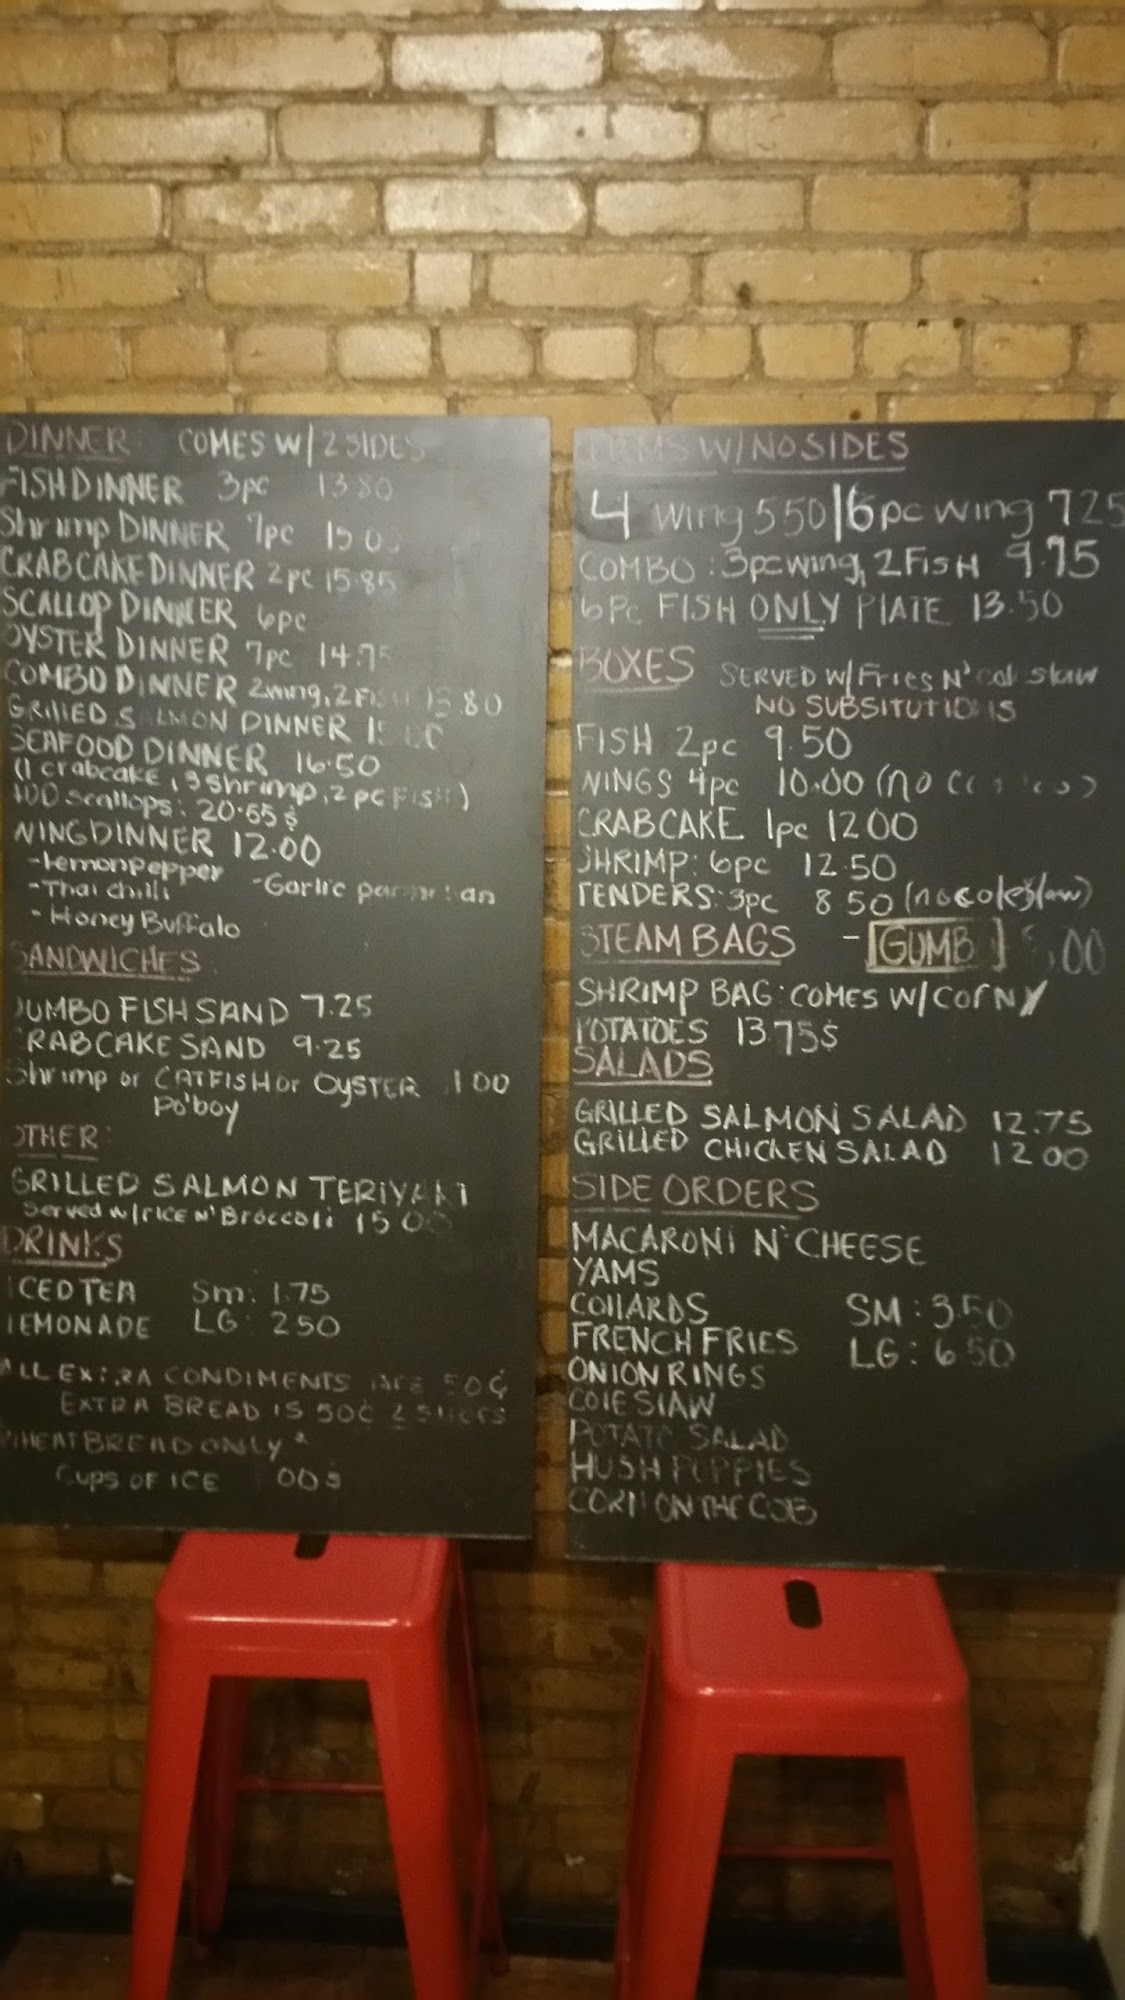 DINNER: COMES W/ 2 SIDES
FISH DINNER 3pc 13.80
Shrimp DINNER 7pc 15 0
CRAB CAKE DINNER 2pc 15.85
SCALLOP DINNER 6pc
OYSTER DINNER 7pc 14.75
COMBO DINNER 2wing, 2 FISH 15.80
GRILLED SALMON DINNER
SEAFOOD DINNER 16.50
(1 crabcake, 3 shrimp, 2 pc FISH)
ADD scallops: 20.55$
WING DINNER 12.00
-lemonpepper
-Thai chili -Garlic parmesan
- Honey Buffalo
SANDWICHES
JUMBO FISH SAND 7.25
CRABCAKE SAND 9.25
Shrimp or CATFISH or OYSTER
po'boy
OTHER:
GRILLED SALMON TERIYAKI
Served w/RICE N' Broccoli 15 00
DRINKS
ICED TEA Sm: 1.75
LEMONADE LG: 250
ALL EXTRA CONDIMENTS ARE 50¢
EXTRA BREAD IS 50¢ 2 SLICES
WHEAT BREAD ONLY *
Cups OF ICE
ITEMS W/NO SIDES
4 wing 550|6pc wing 725
COMBO: 3pc wing, 2 FISH 9.75
6Pc FISH ONLY PLATE 13.50
BOXES SERVED W/Fries N' cole slaw
NO SUBSITUTIONS
FISH 2pc 9.50
WINGS 4pc 10.00 (no
CRABCAKE 1pc 1200
SHRIMP: 6pc 12.50
TENDERS: 3pc 8 50 (no coleslaw)
STEAM BAGS - GUMB
SHRIMP BAG: COMES W/ CORN Y
POTATOES 13 75$
SALADS
GRILLED SALMON SALAD 12.75
GRILLED CHICKEN SALAD 12 00
SIDE ORDERS
MACARONI N' CHEESE
YAMS
COLLARDS SM: 3.50
FRENCH FRIES LG: 6 50
ONION RINGS
COLE SLAW
POTATO SALAD
HUSH PUPPIES
CORN ON THE COB